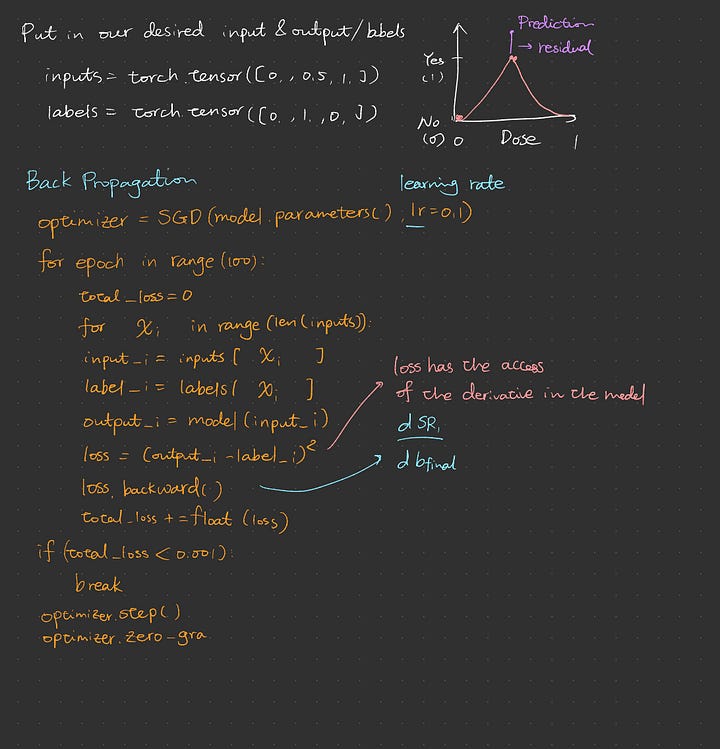 Put in our desired input & output/labels
inputs = torch.tensor([0., 0.5, 1.])
labels = torch.tensor([0., 1., 0.])
Prediction
→ residual
Yes
(1)
No
(0) 0 Dose 1
Back Propagation
learning rate
optimizer = SGD(model.parameters(), lr=0.1)
for epoch in range(100):
total_loss=0
for xi in range(len(inputs)):
input_i = inputs[ xi ]
label_i = labels[ xi ]
output_i = model(input_i)
loss = (output_i - label_i)²
loss.backward()
total_loss += float(loss)
if (total_loss < 0.001):
break
optimizer.step()
optimizer.zero-gra
loss has the access
of the derivative in the model
d SRi
d bfinal